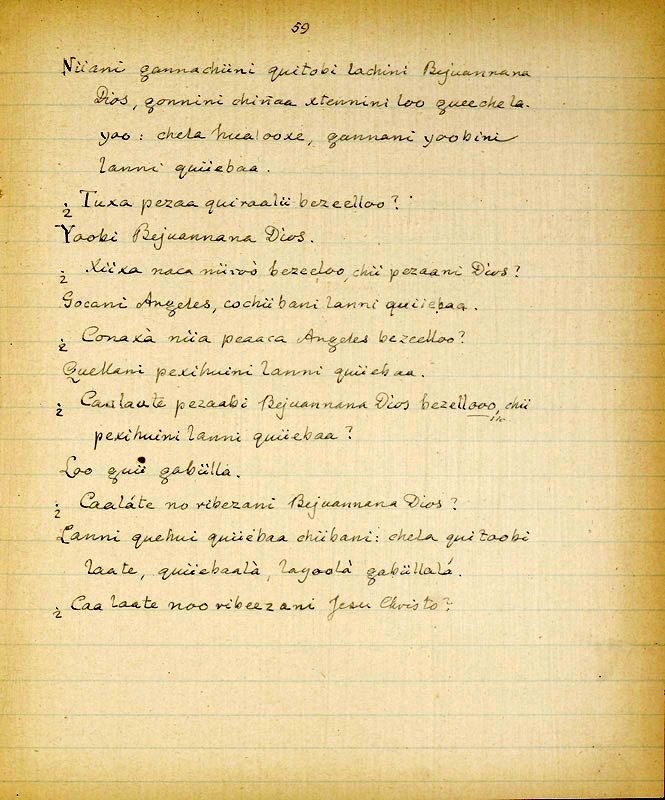 59
Niiani gannachiini quitobi lachini Bejuannana
Dios, gonnini chiñaa xtennini loo gueechela.
yoo: chela hualooxe, gannani yoobini
lanni quiiebaa.
¿ Tuxa pezaa quiraalii bezeelloo?
Yoobi Bejuannana Dios.
¿ Xiixa naca bezeeloo, chii pezaani Dios?
Gocani Angeles, cochiibani lanni quiiebaa.
¿ Conaxà niia peaaca Angeles bezeelloo?
Quellani pexihuini lanni quiiebaa.
¿ Caalaate pezaabi Bejuannana Dios bezellooo, chii
pexihuini lanni quiiebaa?
Loo guii gabiilla.
¿ Caaláte no ribezani Bejuannana Dios?
Lanni quehui quiiebaa chiibani: chela quitoobi
laate, quiiebaalà, layoolà gabiillalá.
¿ Caa laate noo ribeezani Jesu Christo?